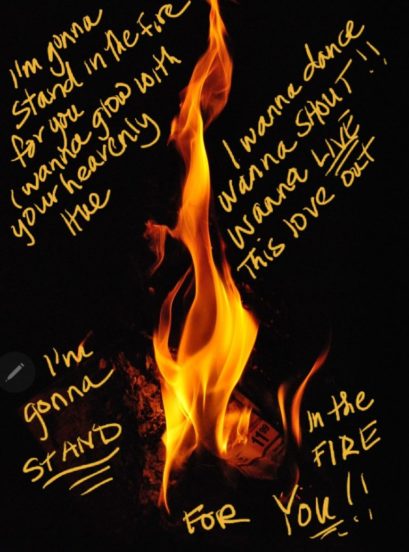 I'm gonna
stand in the fire
for you
I wanna glow with
your heavenly
Hue
I wanna dance
Wanna SHOUT!!
Wanna LIVE
This love out
I'm
gonna
STAND
in the
FIRE
FOR YOU!!